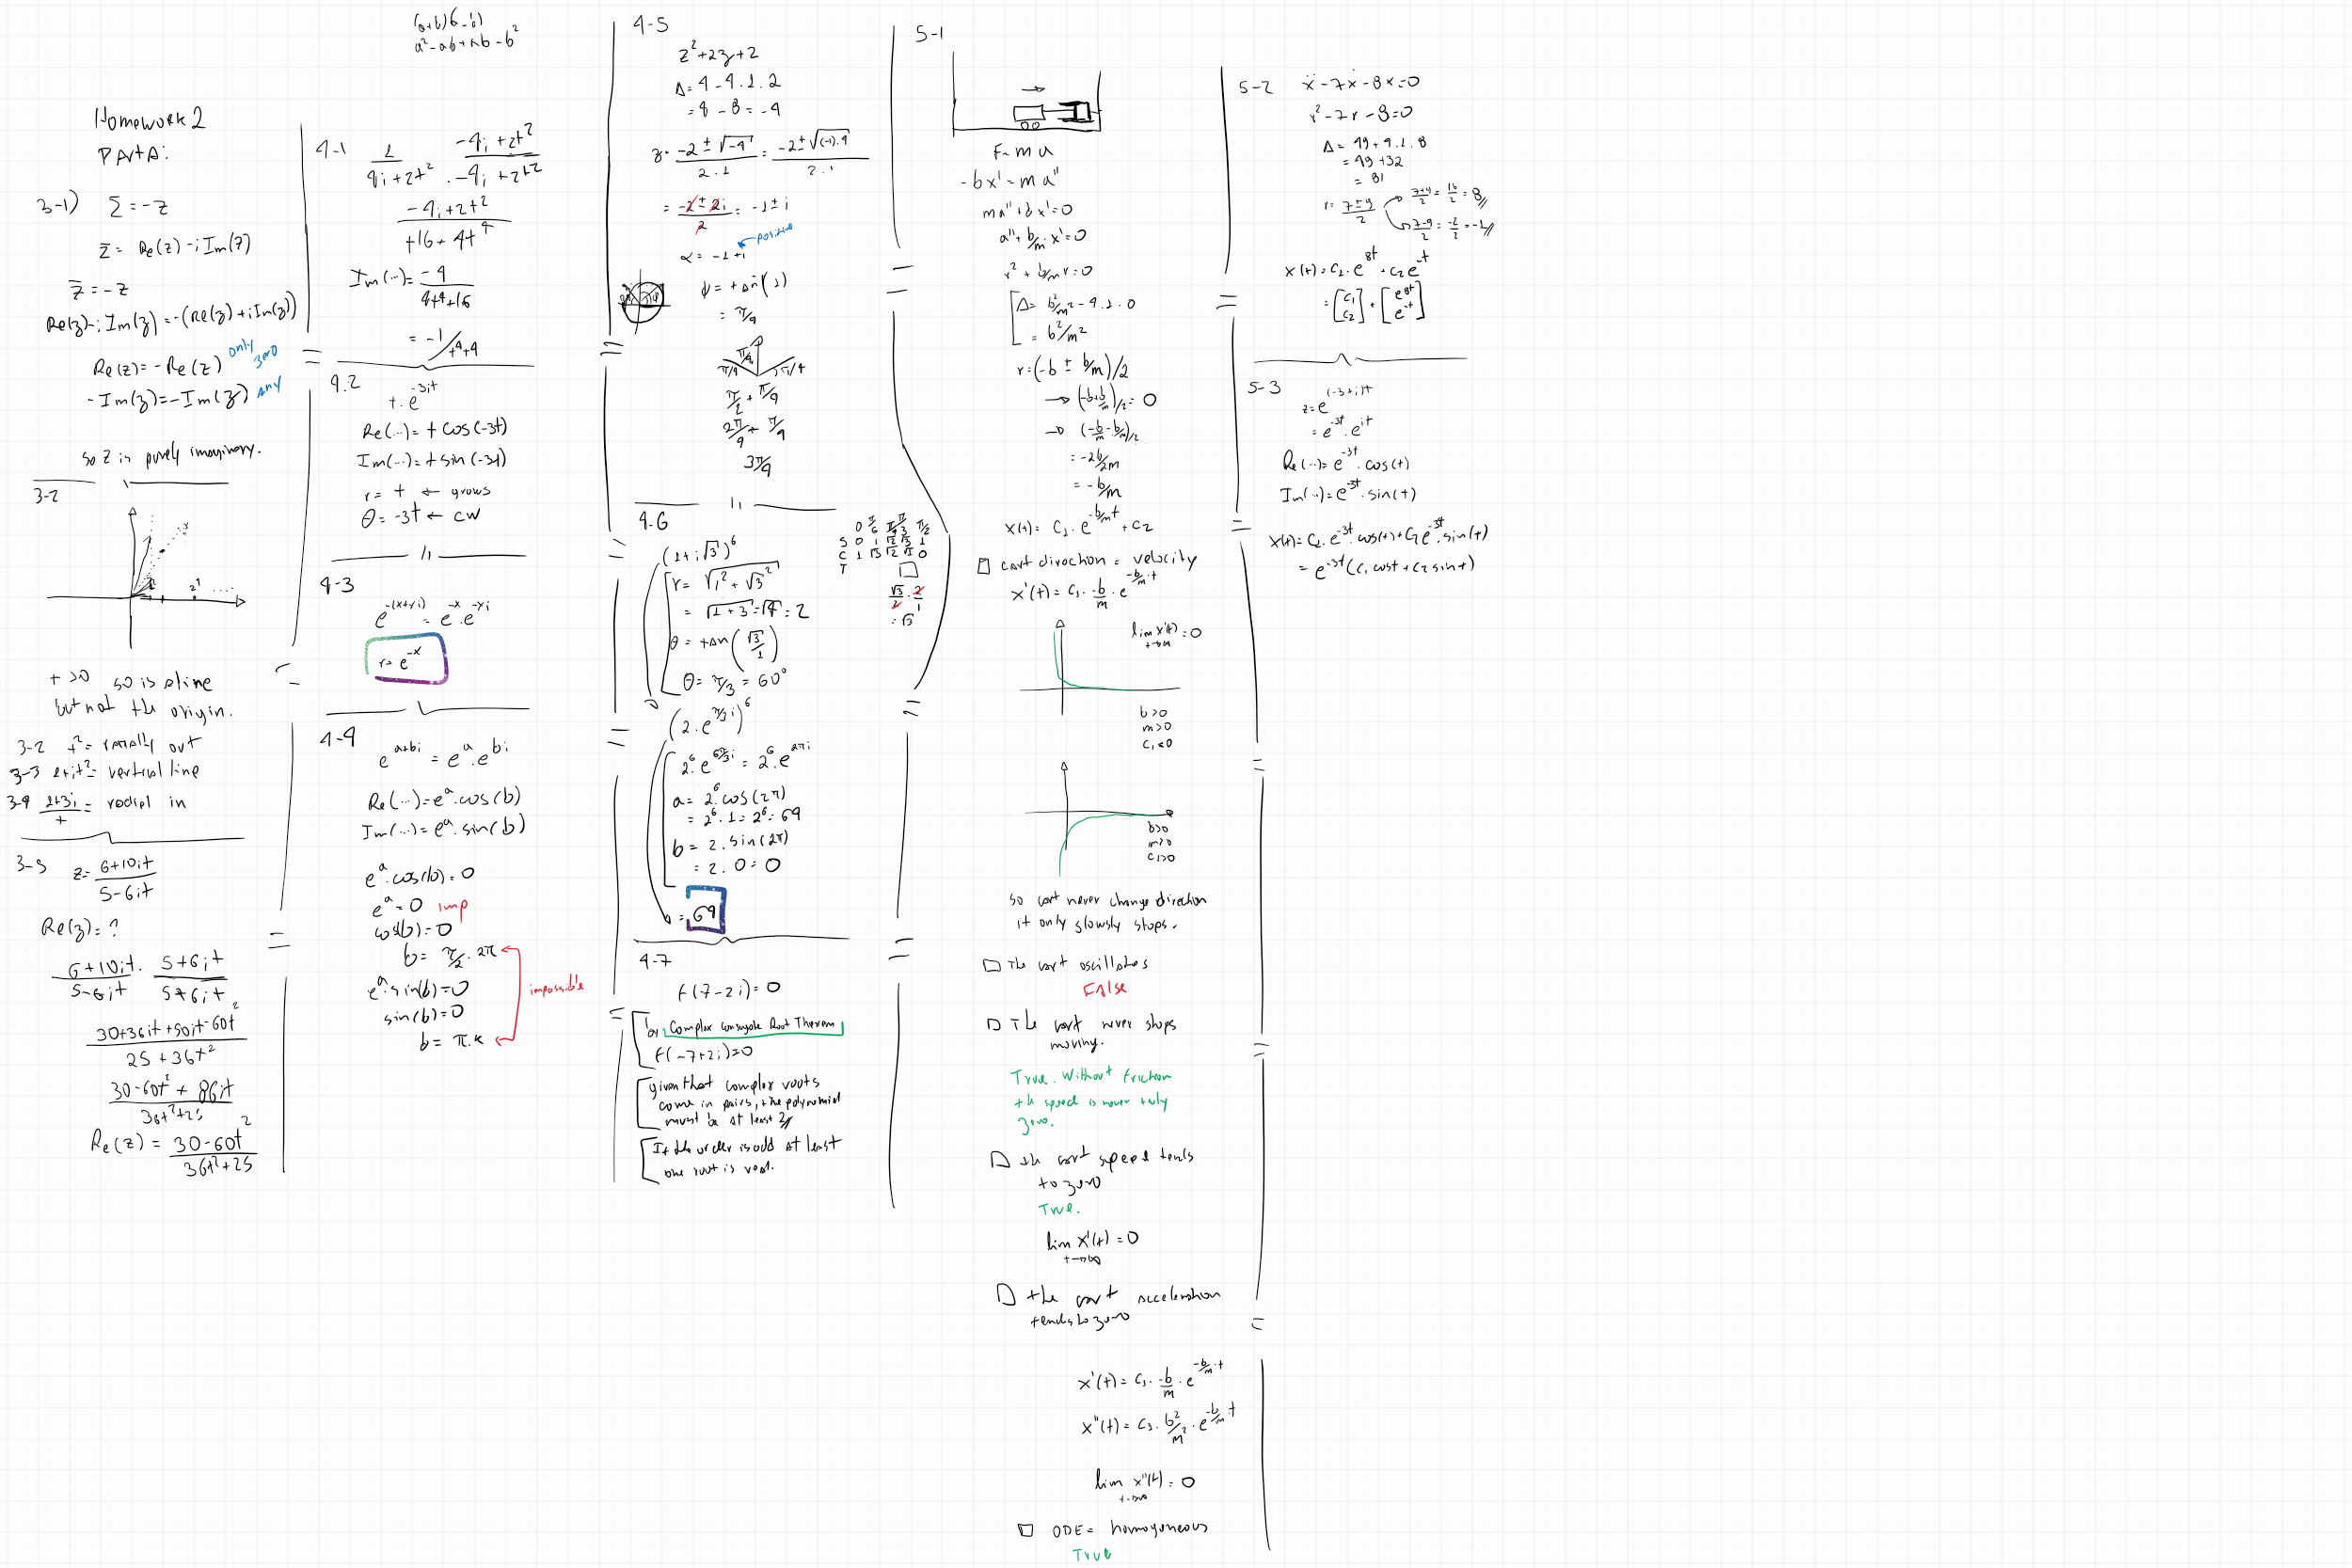 (a+b)(-b)
a²-ab+ab-b²
Homework 2
Part A:
3-1) Z̄ = -z
z̄ = Re(z) - i Im(z)
z̄ = -z
Re(z)-i Im(z) = -(Re(z)+i Im(z))
Re(z) = -Re(z) only zero
-Im(z) = -Im(z) any
so z is purely imaginary.
3-2
t >0 so is a line
but not the origin.
3-2 t² = radially out
3-3 1+it² = vertical line
3-4 (2+3i)/t = radial in
3-5 z = (6+10it)/(5-6it)
Re(z) = ?
(6+10it)/(5-6it) . (5+6it)/(5+6it)
(30+36it+50it-60t²)/(25+36t²)
(30-60t² + 86it)/(36t²+25)
Re(z) = (30-60t²)/(36t²+25)
4-1 1/(4i+2t²) . (-4i+2t²)/(-4i+2t²)
(-4i+2t²)/(+16+4t⁴)
Im(...) = -4/(4t⁴+16)
= -1/(t⁴+4)
4.2
t.e^(-3it)
Re(...) = t cos(-3t)
Im(...) = t sin(-3t)
r = t ← grows
θ = -3t ← cw
4-3
e^-(x+yi) = e^-x . e^-xi
r = e^-x
4-4
e^(a+bi) = e^a . e^bi
Re(...) = e^a . cos(b)
Im(...) = e^a . sin(b)
e^a . cos(b) = 0
e^a = 0 imp
cos(b) = 0
b = π/2 . 2π
e^a . sin(b) = 0 impossible
sin(b) = 0
b = π.k
4-5
z²+2z+2
Δ = 4 - 4.1.2
= 4 - 8 = -4
z = (-2 ± √-4)/(2.1) = (-2 ± √(-1).4)/(2.1)
= (-2 ± 2i)/2 = -1 ± i
positive
α = -1+i
φ = tan(1)
= π/4
π/4
π/4 π/4
π/2 + π/4
2π/4 + π/4
3π/4
4-6
0 π/6 π/4 π/3 π/2
S 0 1 √2 √3 1
C 1 √3 √2 √1 0
T
√3/2 . 2/1
= √3
(1+i√3)⁶
r = √(1² + √3²)
= √(1+3) = √4 = 2
θ = tan(√3/1)
θ = π/3 = 60°
(2.e^(π/3 i))⁶
2⁶.e^(6π/3 i) = 2⁶.e^(2πi)
a = 2⁶.cos(2π)
= 2⁶.1 = 2⁶ = 64
b = 2.sin(2π)
= 2.0 = 0
= 64
4-7
f(7-2i) = 0
by Complex conjugate Root Theorem
f(-7+2i) = 0
given that complex roots
come in pairs, the polynomial
must be at least 2
If the order is odd at least
one root is real.
5-1
F = m a
-bx' = m a''
ma''+bx' = 0
a''+ b/m . x' = 0
r² + b/m r = 0
Δ = b²/m² - 4.1.0
= b²/m²
r = (-b ± b/m)/2
→ (-b+b/m)/2 = 0
→ (-b/m - b/m)/2
= -2b/2m
= -b/m
x(t) = C₁.e^(-b/m t) + C₂
□ cart direction = velocity
x'(t) = C₁. -b/m . e^(-b/m .t)
lim x'(t) = 0
t→∞
b>0
m>0
c₁<0
b>0
m>0
c₁>0
so cart never change direction
it only slowly stops.
□ The cart oscillates
False
□ The cart never stops
moving.
True. Without friction
the speed is never truly
zero.
□ the cart speed tends
to zero
True.
lim x'(t) = 0
t→∞
□ the cart acceleration
tends to zero
x'(t) = C₁. -b/m . e^(-b/m .t)
x''(t) = C₁. b²/m² . e^(-b/m .t)
lim x''(t) = 0
t→∞
□ ODE = homogeneous
True
5-2 ẍ - 7ẋ - 8x = 0
r² - 7r - 8 = 0
Δ = 49 + 4.1.8
= 49 + 32
= 81
r = (7±9)/2 → (7+9)/2 = 16/2 = 8
→ (7-9)/2 = -2/2 = -1
x(t) = C₁.e^8t + C₂e^-t
= [C₁ C₂] + [e^8t e^-t]
5-3
z = e^(-3+i)t
= e^-3t . e^it
Re(...) = e^-3t . cos(t)
Im(...) = e^-3t . sin(t)
x(t) = C₁.e^-3t . cos(t) + C₂e^-3t . sin(t)
= e^-3t (C₁ cos t + C₂ sin t)